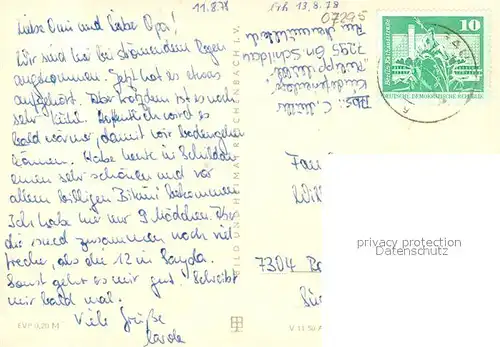 11.8.78
Erh 13.8.78
07295
Liebe Omi und lieber Opa!
Wir sind hier bei strömendem Regen
angekommen. Jetzt hat es etwas
aufgehört. Aber trotzdem ist es noch
sehr kühl. Hoffentlich wird es
bald wärmer, damit wir baden gehen
können. Habe heute in Schildau
einen sehr schönen und vor
allem billigen Bikini bekommen
Ich habe hier nur 9 Mädchen. Aber
die sind zusammen noch viel
frecher, als die 12 in Sayda.
Sonst geht es mir gut. Schreibt
mir bald mal.
Viele Grüße
Carola
EVP 0,20 M
BILD UND HEIMAT REICHENBACH I. V.
V 11 50 A
Abs: C. Müller
7295 Schildau
10
Berlin, Rathausstraße
DEUTSCHE DEMOKRATISCHE REPUBLIK
Fam
7304
privacy protection
Datenschutz